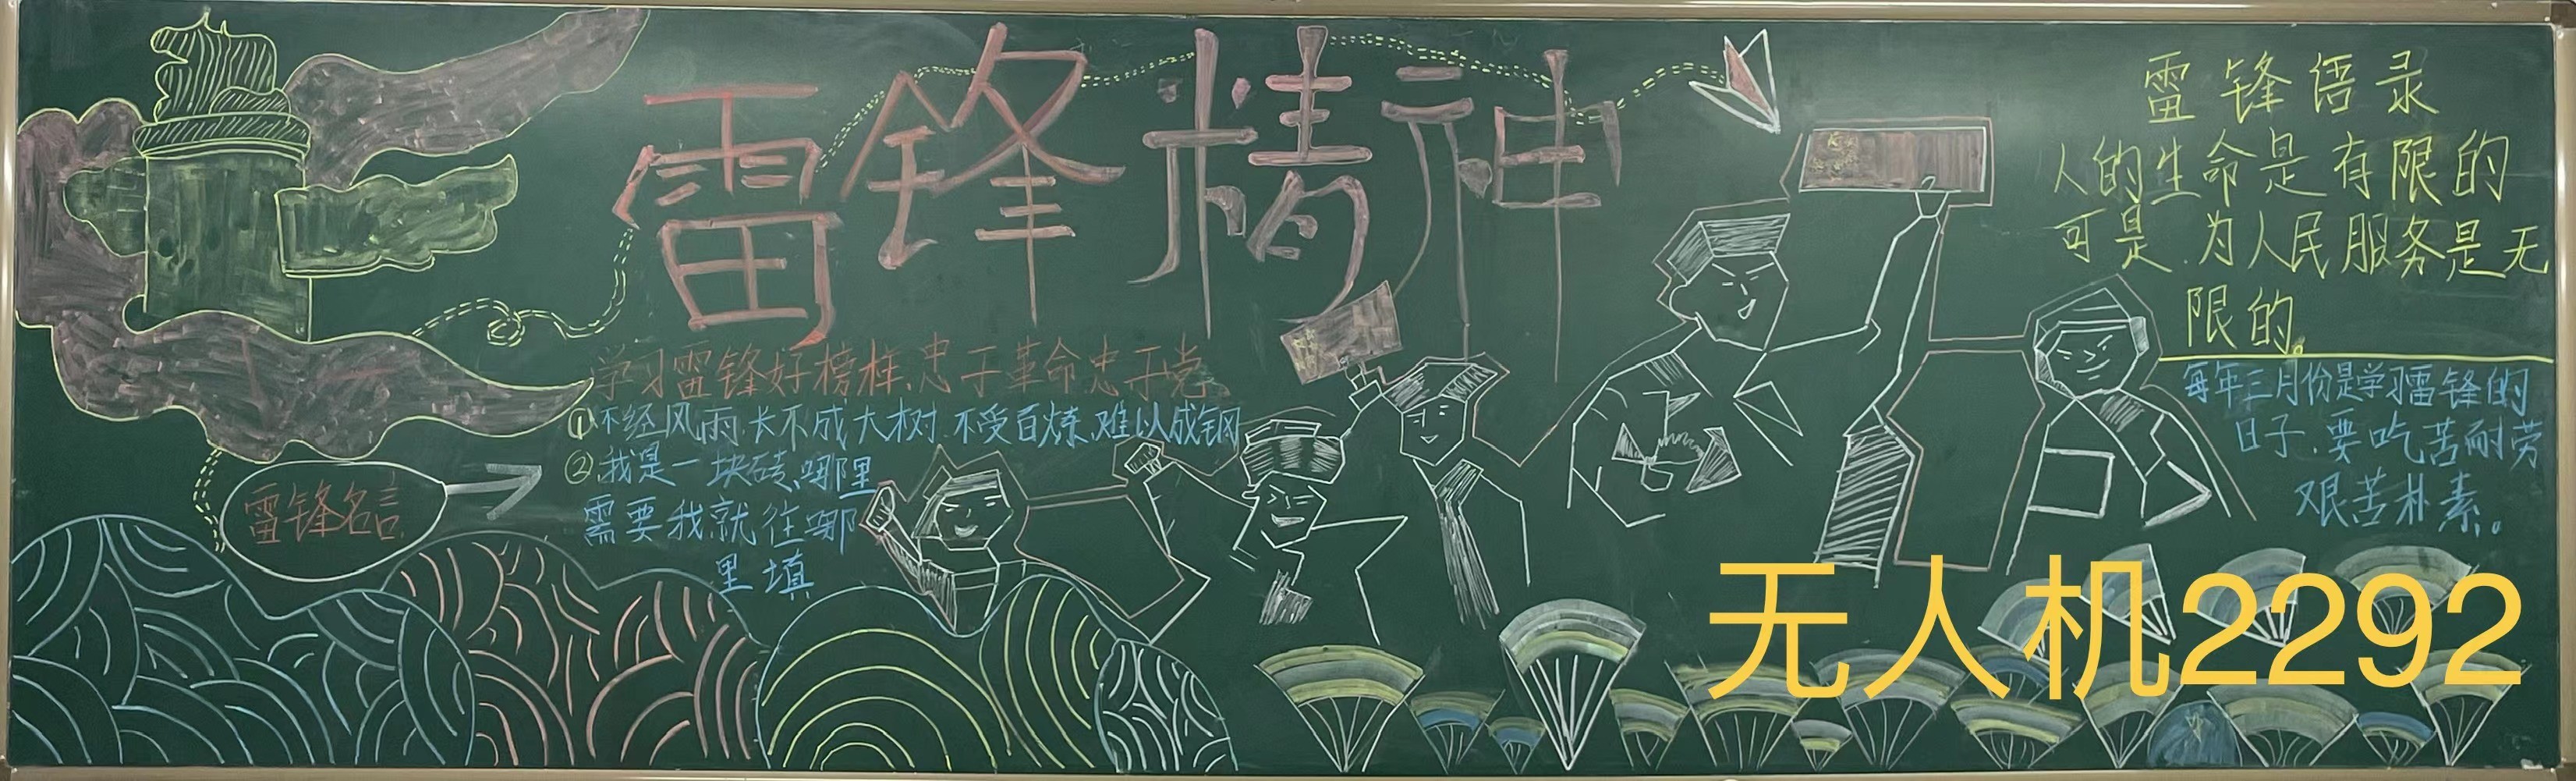 雷锋精神
学习雷锋好榜样、忠于革命忠于党。
①不经风雨、长不成大树、不受百炼、难以成钢
②我是一块砖、哪里
需要我就往哪
里填
雷锋名言
雷锋语录
人的生命是有限的
可是、为人民服务是无
限的。
每年三月份是学习雷锋的
日子、要吃苦耐劳
艰苦朴素。
无人机2292